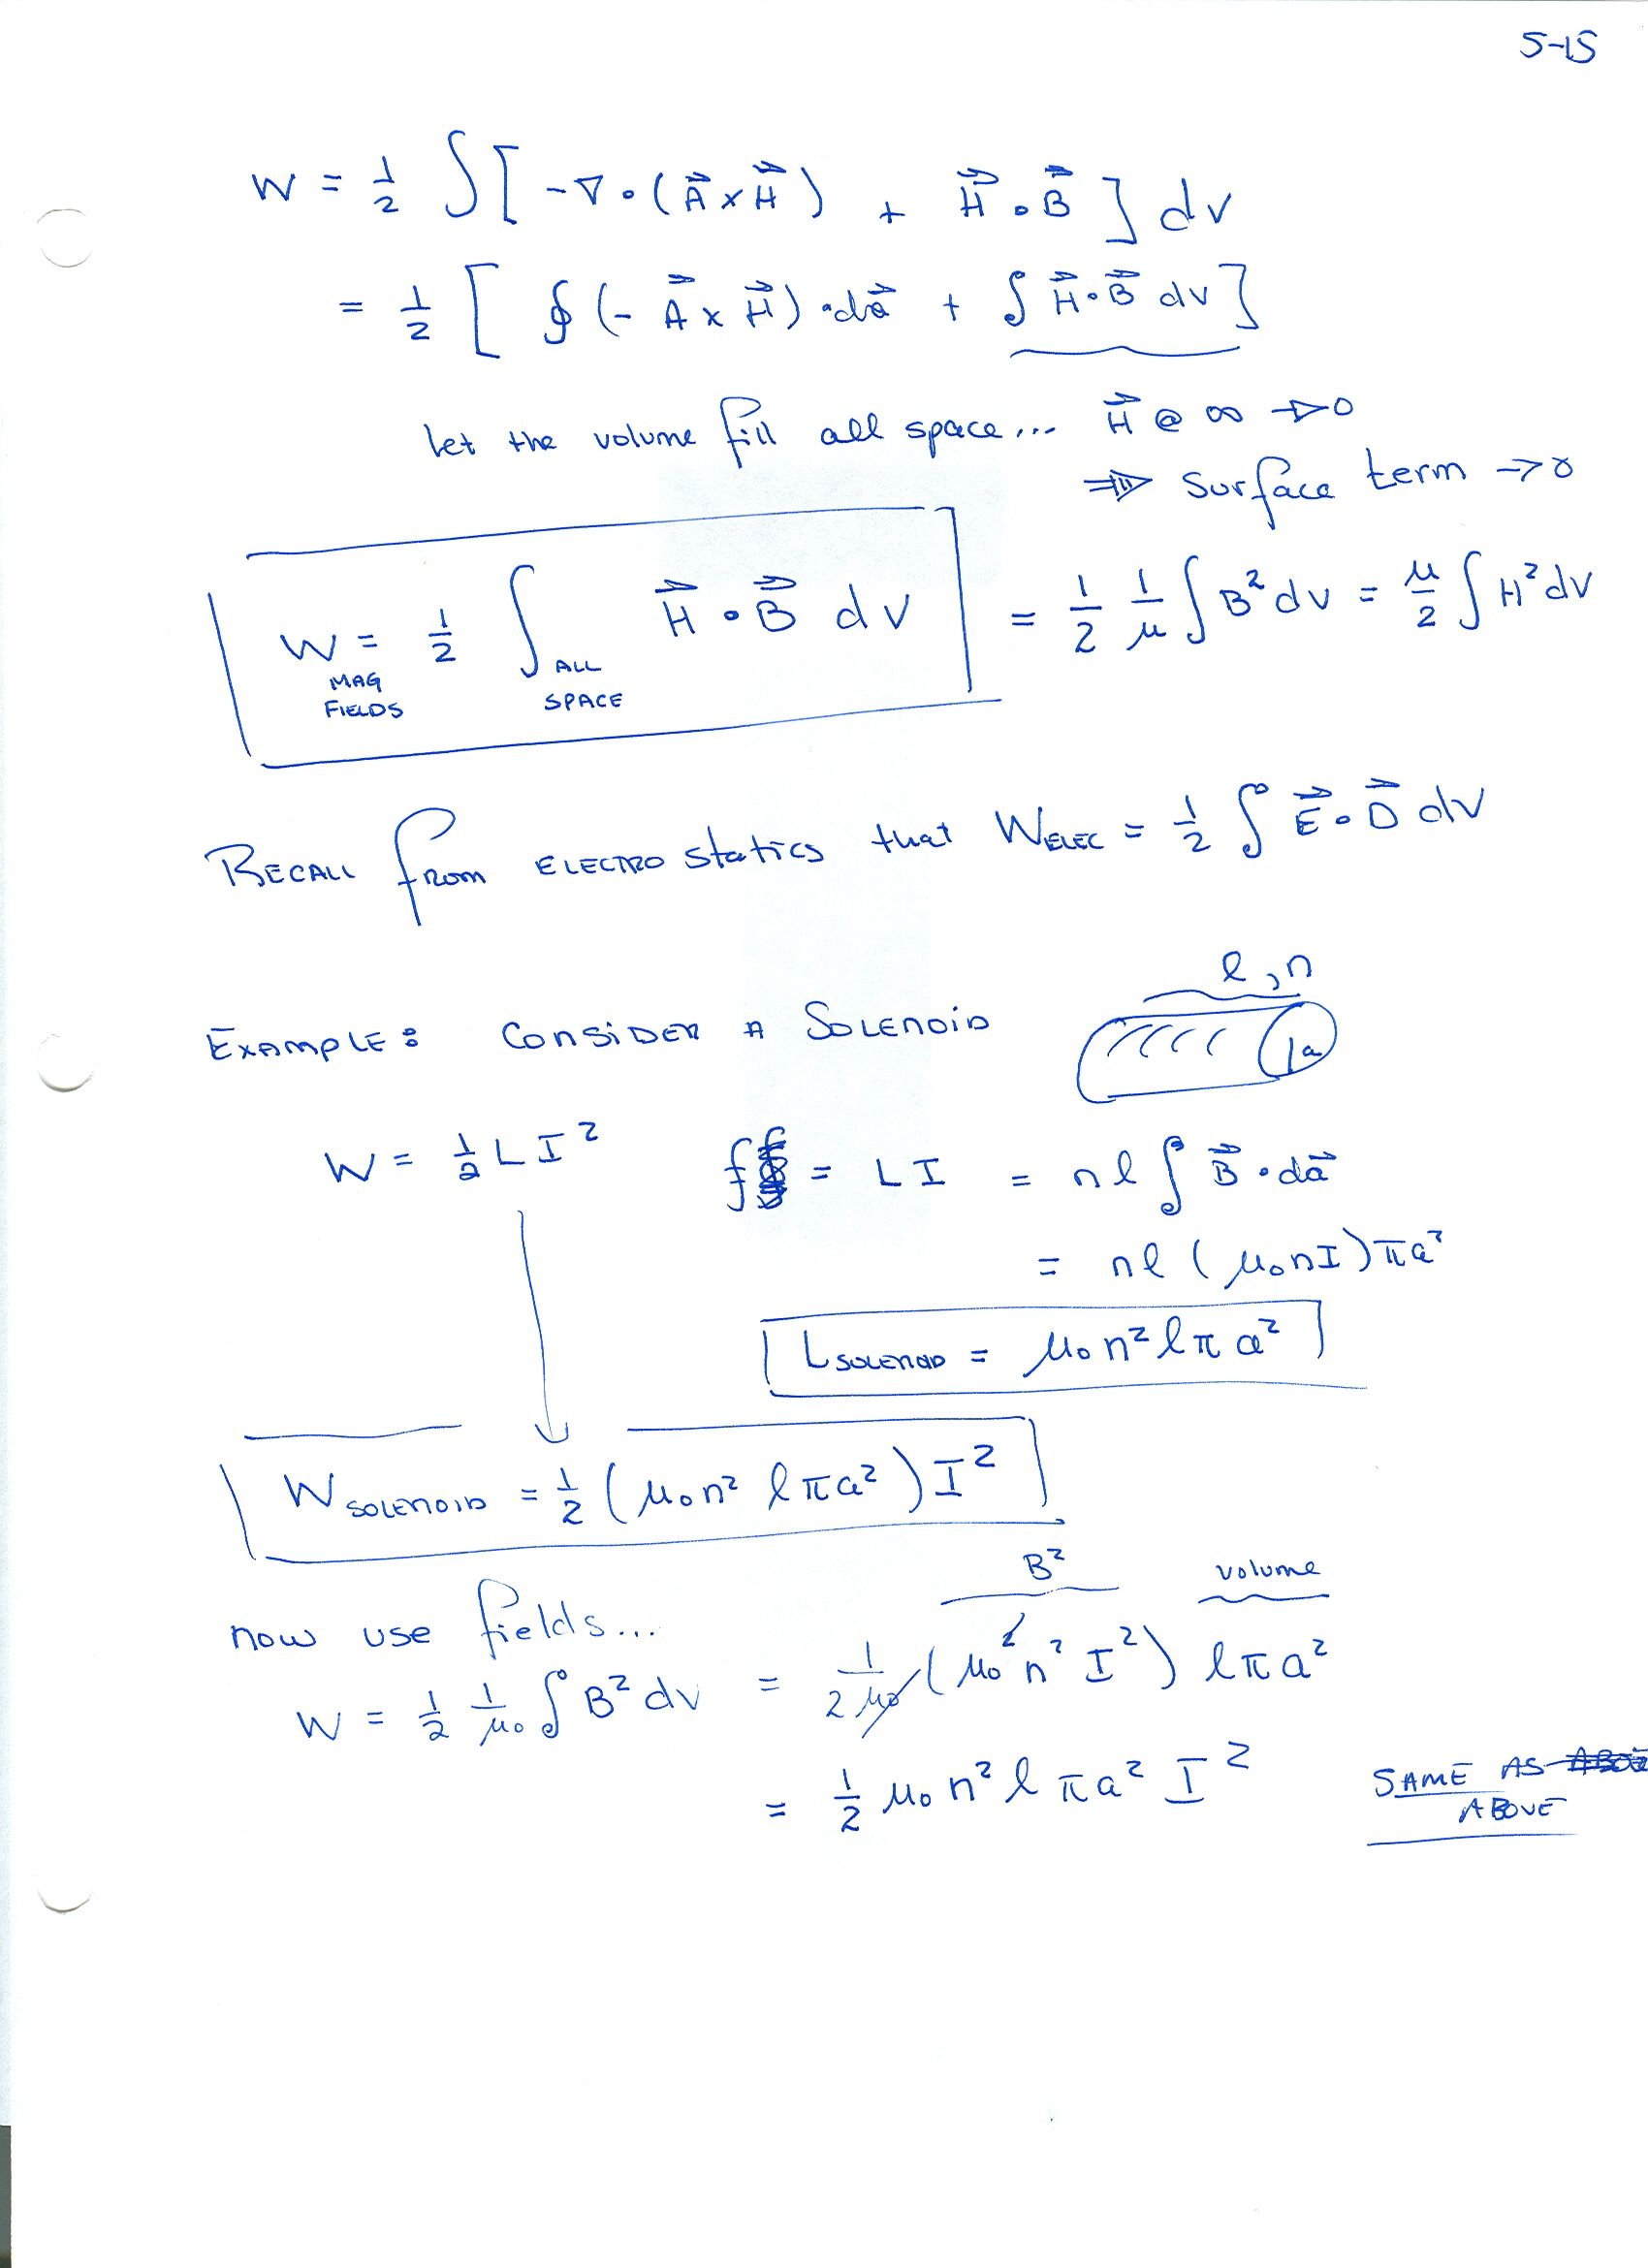 5-15
W = 1/2 ∫ [ -∇·(A⃗ × H⃗) + H⃗·B⃗ ] dv
= 1/2 [ ∮ (- A⃗ × H⃗)·da⃗ + ∫ H⃗·B⃗ dv ]
let the volume fill all space... H⃗ @ ∞ → 0
⇒ surface term → 0
W MAG FIELDS = 1/2 ∫ ALL SPACE H⃗·B⃗ dv = 1/2 1/μ ∫ B² dv = μ/2 ∫ H² dv
RECALL from ELECTRO statics that W ELEC = 1/2 ∫ E⃗·D⃗ dv
l, n
EXAMPLE: CONSIDER A SOLENOID
a
W = 1/2 L I² = L I = n l ∫ B⃗·da⃗
= n l (μ₀ n I) π a²
L SOLENOID = μ₀ n² l π a²
W SOLENOID = 1/2 (μ₀ n² l π a²) I²
B² volume
now use fields...
W = 1/2 1/μ₀ ∫ B² dv = 1/(2 μ₀) (μ₀² n² I²) l π a²
= 1/2 μ₀ n² l π a² I² SAME AS
ABOVE